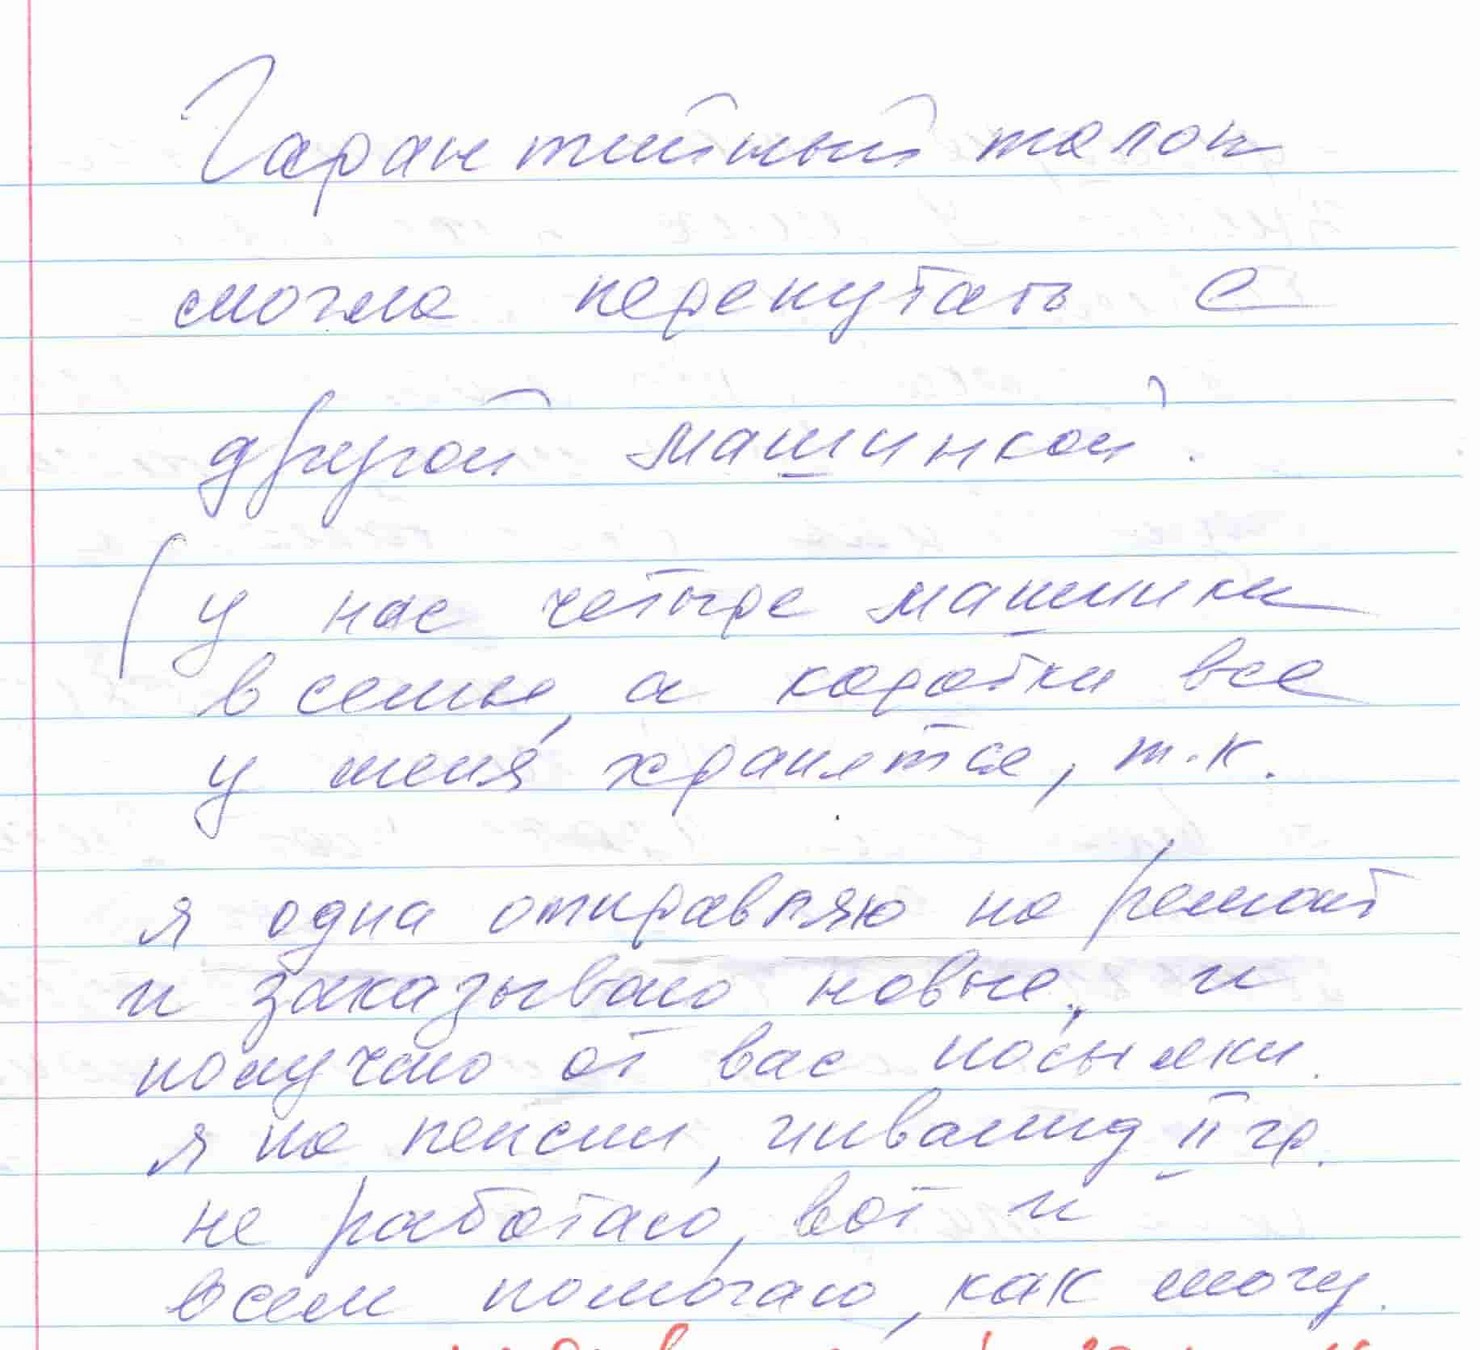 Гарантийный талон
могла перепутать с
другой машинкой.
(у нас четыре машинки
в семье, а коробки все
у меня хранятся, т.к.
я одна отправляю на ремонт
и заказываю новые, и
получаю от вас посылки.
я на пенсии, инвалид II гр.
не работаю, вот и
всем помогаю, как могу.